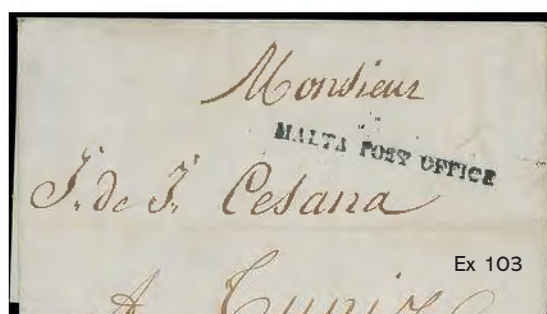 Monsieur
MALTA POST OFFICE
J. de J. Cesana
Ex 103
A Tunis